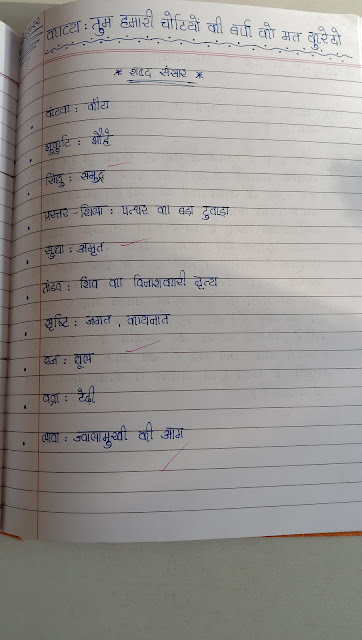 काव्य : तुम हमारी चोटियों की बर्फ को मत कुरेदो
* शब्द संसार *
कंटक : काँटा
भृकुटि : भौहें
सिंधु : समुद्र
प्रस्तर - शिला : पत्थर का बड़ा टुकड़ा
सुधा : अमृत
तांडव : शिव का विनाशकारी नृत्य
सृष्टि : जगत , कायनात
रज : धूल
वक्र : टेढ़ी
लावा : ज्वालामुखी की आग